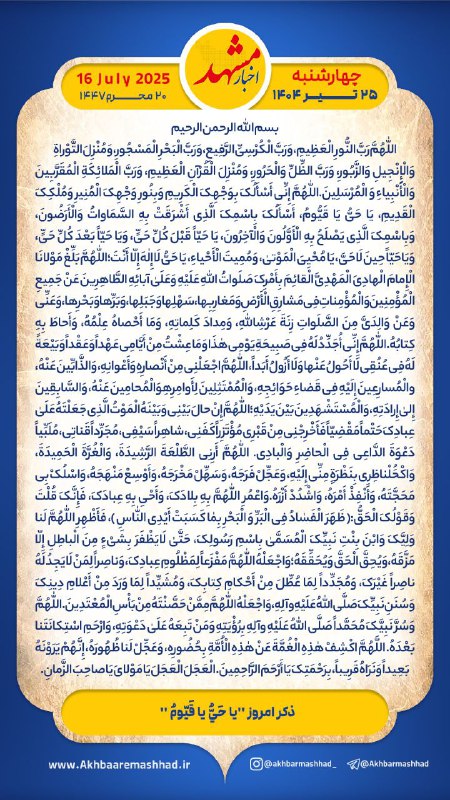 اخبار مشهد
چهارشنبه
۲۵ تیر ۱۴۰۴
16 July 2025
۲۰ محرم ۱۴۴۷
بسم الله الرحمن الرحیم
اَللّٰهُمَّ رَبَّ النُّورِ الْعَظِیمِ، وَرَبَّ الْکُرْسِیِّ الرَّفِیعِ، وَرَبَّ الْبَحْرِ الْمَسْجُورِ، وَمُنْزِلَ التَّوْراةِ
وَالْإِنْجِیلِ وَالزَّبُورِ، وَرَبَّ الظِّلِّ وَالْحَرُورِ، وَمُنْزِلَ الْقُرْآنِ الْعَظِیمِ، وَرَبَّ الْمَلائِکَةِ الْمُقَرَّبِینَ
وَالْأَنْبِیاءِ وَالْمُرْسَلِینَ. اللّٰهُمَّ إِنِّی أَسْأَلُکَ بِوَجْهِکَ الْکَرِیمِ وَبِنُورِ وَجْهِکَ الْمُنِیرِ وَمُلْکِکَ
الْقَدِیمِ، یَا حَیُّ یَا قَیُّومُ، أَسْأَلُکَ بِاسْمِکَ الَّذِی أَشْرَقَتْ بِهِ السَّمَاوَاتُ وَالْأَرَضُونَ،
وَبِاسْمِکَ الَّذِی یَصْلَحُ بِهِ الْأَوَّلُونَ وَالْآخِرُونَ، یَا حَیّاً قَبْلَ کُلِّ حَیٍّ، وَیَا حَیّاً بَعْدَ کُلِّ حَیٍّ،
وَیَا حَیّاً حِینَ لَا حَیَّ، یَا مُحْیِیَ الْمَوْتیٰ، وَمُمِیتَ الْأَحْیاءِ، یَا حَیُّ لَاإِلٰهَ إِلّا أَنْتَ؛ اللّٰهُمَّ بَلِّغْ مَوْلانَا
الْإِمامَ الْهادِیَ الْمَهْدِیَّ الْقائِمَ بِأَمْرِکَ صَلَواتُ اللّٰهِ عَلَیْهِ وَعَلَیٰ آبائِهِ الطَّاهِرِینَ عَنْ جَمِیعِ
الْمُؤْمِنِینَ وَالْمُؤْمِناتِ فِی مَشارِقِ الْأَرْضِ وَمَغارِبِها، سَهْلِها وَجَبَلِها، وَبَرِّها وَبَحْرِها، وَعَنِّی
وَعَنْ وَالِدَیَّ مِنَ الصَّلَواتِ زِنَةَ عَرْشِ اللّٰهِ، وَمِدادَ کَلِماتِهِ، وَمَا أَحْصاهُ عِلْمُهُ، وَأَحاطَ بِهِ
کِتابُهُ. اللّٰهُمَّ إِنِّی أُجَدِّدُ لَهُ فِی صَبِیحَةِ یَوْمِی هٰذَا وَمَا عِشْتُ مِنْ أَیَّامِی عَهْداً وَعَقْداً وَبَیْعَةً
لَهُ فِی عُنُقِی لَا أَحُولُ عَنْها وَلَا أَزُولُ أَبَداً. اللّٰهُمَّ اجْعَلْنِی مِنْ أَنْصارِهِ وَأَعْوانِهِ، وَالذَّابِّینَ عَنْهُ،
وَالْمُسارِعِینَ إِلَیْهِ فِی قَضاءِ حَوَائِجِهِ، وَالْمُمْتَثِلِینَ لِأَوامِرِهِ وَالْمُحامِینَ عَنْهُ، وَالسَّابِقِینَ
إِلیٰ إِرادَتِهِ، وَالْمُسْتَشْهَدِینَ بَیْنَ یَدَیْهِ؛ اللّٰهُمَّ إِنْ حالَ بَیْنِی وَبَیْنَهُ الْمَوْتُ الَّذِی جَعَلْتَهُ عَلَیٰ
عِبادِکَ حَتْماً مَقْضِیّاً فَأَخْرِجْنِی مِنْ قَبْرِی مُؤْتَزِراً کَفَنِی، شاهِراً سَیْفِی، مُجَرِّداً قَناتِی، مُلَبِّیاً
دَعْوَةَ الدَّاعِی فِی الْحاضِرِ وَالْبادِی. اللّٰهُمَّ أَرِنِی الطَّلْعَةَ الرَّشِیدَةَ، وَالْغُرَّةَ الْحَمِیدَةَ،
وَاکْحُلْ ناظِرِی بِنَظْرَةٍ مِنِّی إِلَیْهِ، وَعَجِّلْ فَرَجَهُ، وَسَهِّلْ مَخْرَجَهُ، وَأَوْسِعْ مَنْهَجَهُ، وَاسْلُکْ بِی
مَحَجَّتَهُ، وَأَنْفِذْ أَمْرَهُ، وَاشْدُدْ أَزْرَهُ. وَاعْمُرِ اللّٰهُمَّ بِهِ بِلادَکَ، وَأَحْیِ بِهِ عِبادَکَ، فَإِنَّکَ قُلْتَ
وَقَوْلُکَ الْحَقُّ: (ظَهَرَ الْفَسادُ فِی الْبَرِّ وَالْبَحْرِ بِمَا کَسَبَتْ أَیْدِی النَّاسِ)، فَأَظْهِرِ اللّٰهُمَّ لَنا
وَلِیَّکَ وَابْنَ بِنْتِ نَبِیِّکَ الْمُسَمَّیٰ بِاسْمِ رَسُولِکَ، حَتَّیٰ لَا یَظْفَرَ بِشَیْءٍ مِنَ الْباطِلِ إِلّا
مَزَّقَهُ، وَیُحِقَّ الْحَقَّ وَیُحَقِّقَهُ؛ وَاجْعَلْهُ اللّٰهُمَّ مَفْزَعاً لِمَظْلُومِ عِبادِکَ، وَناصِراً لِمَنْ لَا یَجِدُ لَهُ
ناصِراً غَیْرَکَ، وَمُجَدِّداً لِمَا عُطِّلَ مِنْ أَحْکامِ کِتابِکَ، وَمُشَیِّداً لِمَا وَرَدَ مِنْ أَعْلامِ دِینِکَ
وَسُنَنِ نَبِیِّکَ صَلَّی اللّٰهُ عَلَیْهِ وَآلِهِ، وَاجْعَلْهُ اللّٰهُمَّ مِمَّنْ حَصَّنْتَهُ مِنْ بَأْسِ الْمُعْتَدِینَ. اللّٰهُمَّ
وَسُرَّ نَبِیَّکَ مُحَمَّداً صَلَّی اللّٰهُ عَلَیْهِ وَآلِهِ بِرُؤْیَتِهِ وَمَنْ تَبِعَهُ عَلَیٰ دَعْوَتِهِ، وَارْحَمِ اسْتِکانَتَنا
بَعْدَهُ. اللّٰهُمَّ اکْشِفْ هٰذِهِ الْغُمَّةَ عَنْ هٰذِهِ الْأُمَّةِ بِحُضُورِهِ، وَعَجِّلْ لَنا ظُهُورَهُ، إِنَّهُمْ یَرَوْنَهُ
بَعِیداً وَنَرَاهُ قَرِیباً، بِرَحْمَتِکَ یَا أَرْحَمَ الرَّاحِمِینَ. الْعَجَلَ الْعَجَلَ یَا مَوْلایَ یَا صاحِبَ الزَّمانِ.
ذکر امروز "یا حَيُّ یا قَیّومُ"
www.Akhbaaremashhad.ir
@akhbarmashhad_
@Akhbarmashhad